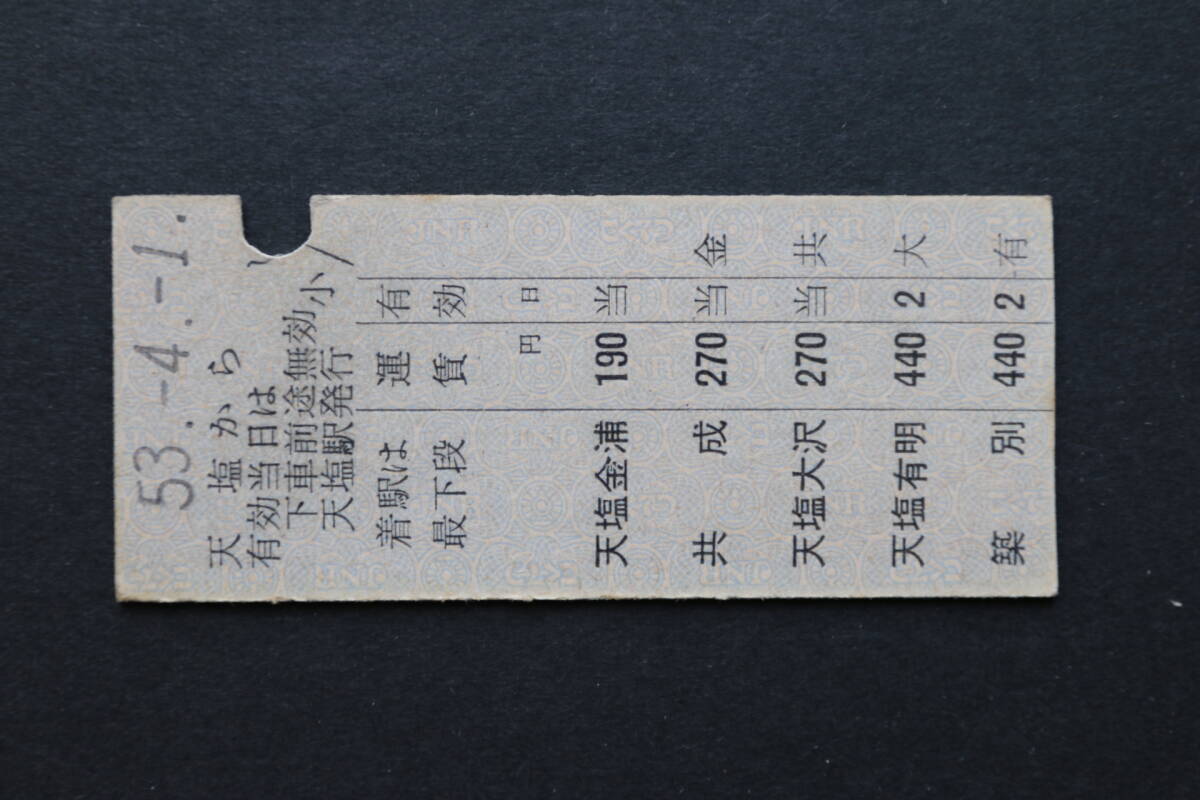 53.-4.-1.
天塩から
有効当日は
下車前途無効
天塩駅発行
小
着駅は最下段 運賃 有効
円 日
天塩金浦 190 当
共成 270 当 金
天塩大沢 270 当 共
天塩有明 440 2 大
築別 440 2 有